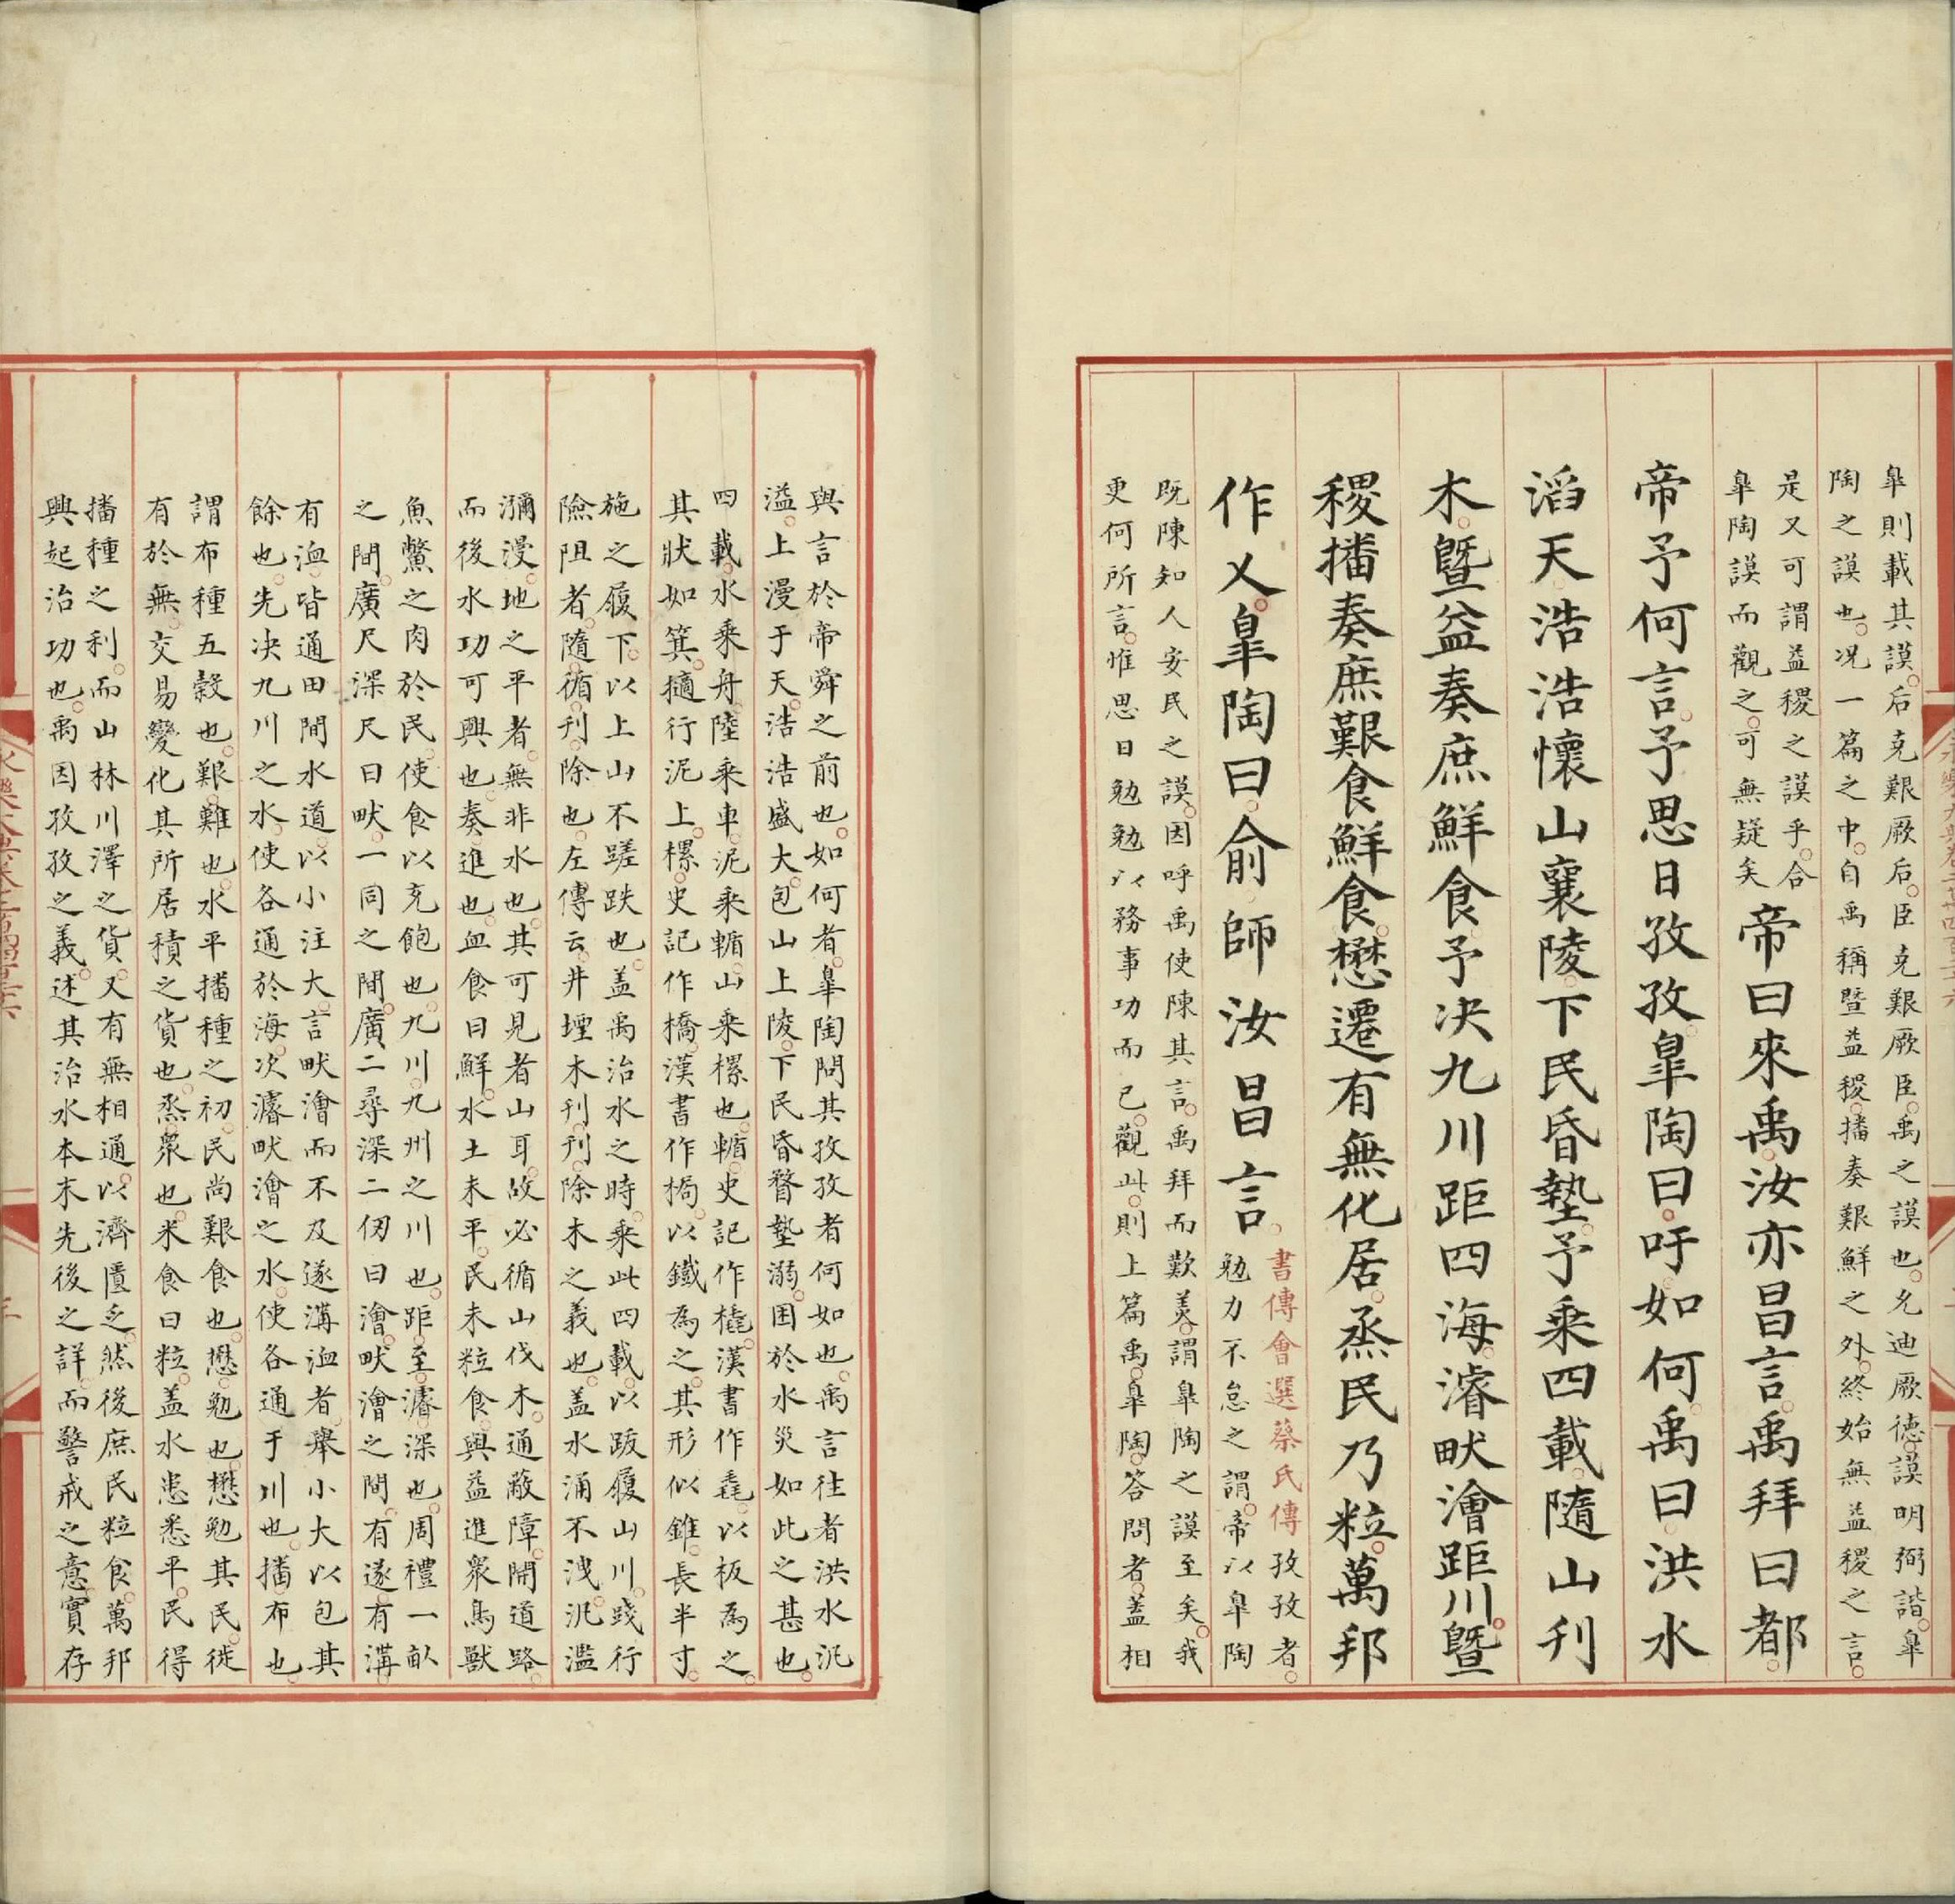 皐則載其謨后克艱厥后臣克艱厥臣禹之謨也允迪厥德謨明弼諧皐
陶之謨也况一篇之中自禹稱暨益稷播奏艱鮮之外終始無益稷之言
是又可謂益稷之謨乎合
皐陶謨而觀之可無疑矣
帝曰來禹汝亦昌言禹拜曰都
帝予何言予思日孜孜皐陶曰吁如何禹曰洪水
滔天浩浩懷山襄陵下民昏墊予乘四載隨山刋
木暨益奏庶鮮食予决九川距四海濬畎澮距川暨
稷播奏庶艱食鮮食懋遷有無化居烝民乃粒萬邦
作乂皐陶曰俞師汝昌言
書傳會選蔡氏傳孜孜者
勉力不怠之謂帝以皐陶
既陳知人安民之謨因呼禹使陳其言禹拜而歎美謂皐陶之謨至矣我
更何所言惟思日勉勉以務事功而已觀此則上篇禹皐陶答問者蓋相
與言於帝舜之前也如何者皐陶問其孜孜者何如也禹言往者洪水汎
溢上漫于天浩浩盛大包山上陵下民昏瞀墊溺困於水災如此之甚也
四載水乘舟陸乘車泥乘輴山乘樏也輴史記作橇漢書作毳以板為之
其狀如箕擿行泥上樏史記作橋漢書作梮以鐵為之其形似錐長半寸
施之履下以上山不蹉跌也蓋禹治水之時乘此四載以跋履山川踐行
險阻者隨循刋除也左傳云井堙木刋刋除木之義也蓋水涌不洩汎濫
瀰漫地之平者無非水也其可見者山耳故必循山伐木通蔽障開道路
而後水功可興也奏進也血食曰鮮水土未平民未粒食與益進衆鳥獸
魚鱉之肉於民使食以充飽也九川九州之川也距至濬深也周禮一畝
之間廣尺深尺曰畎一同之間廣二尋深二仞曰澮畎澮之間有遂有溝
有洫皆通田間水道以小注大言畎澮而不及遂溝洫者舉小大以包其
餘也先决九川之水使各通於海次濬畎澮之水使各通于川也播布也
謂布種五穀也艱難也水平播種之初民尚艱食也懋勉也懋勉其民徙
有於無交易變化其所居積之貨也烝衆也米食曰粒蓋水患悉平民得
播種之利而山林川澤之貨又有無相通以濟匱乏然後庶民粒食萬邦
興起治功也禹因孜孜之義述其治水本末先後之詳而警戒之意實存